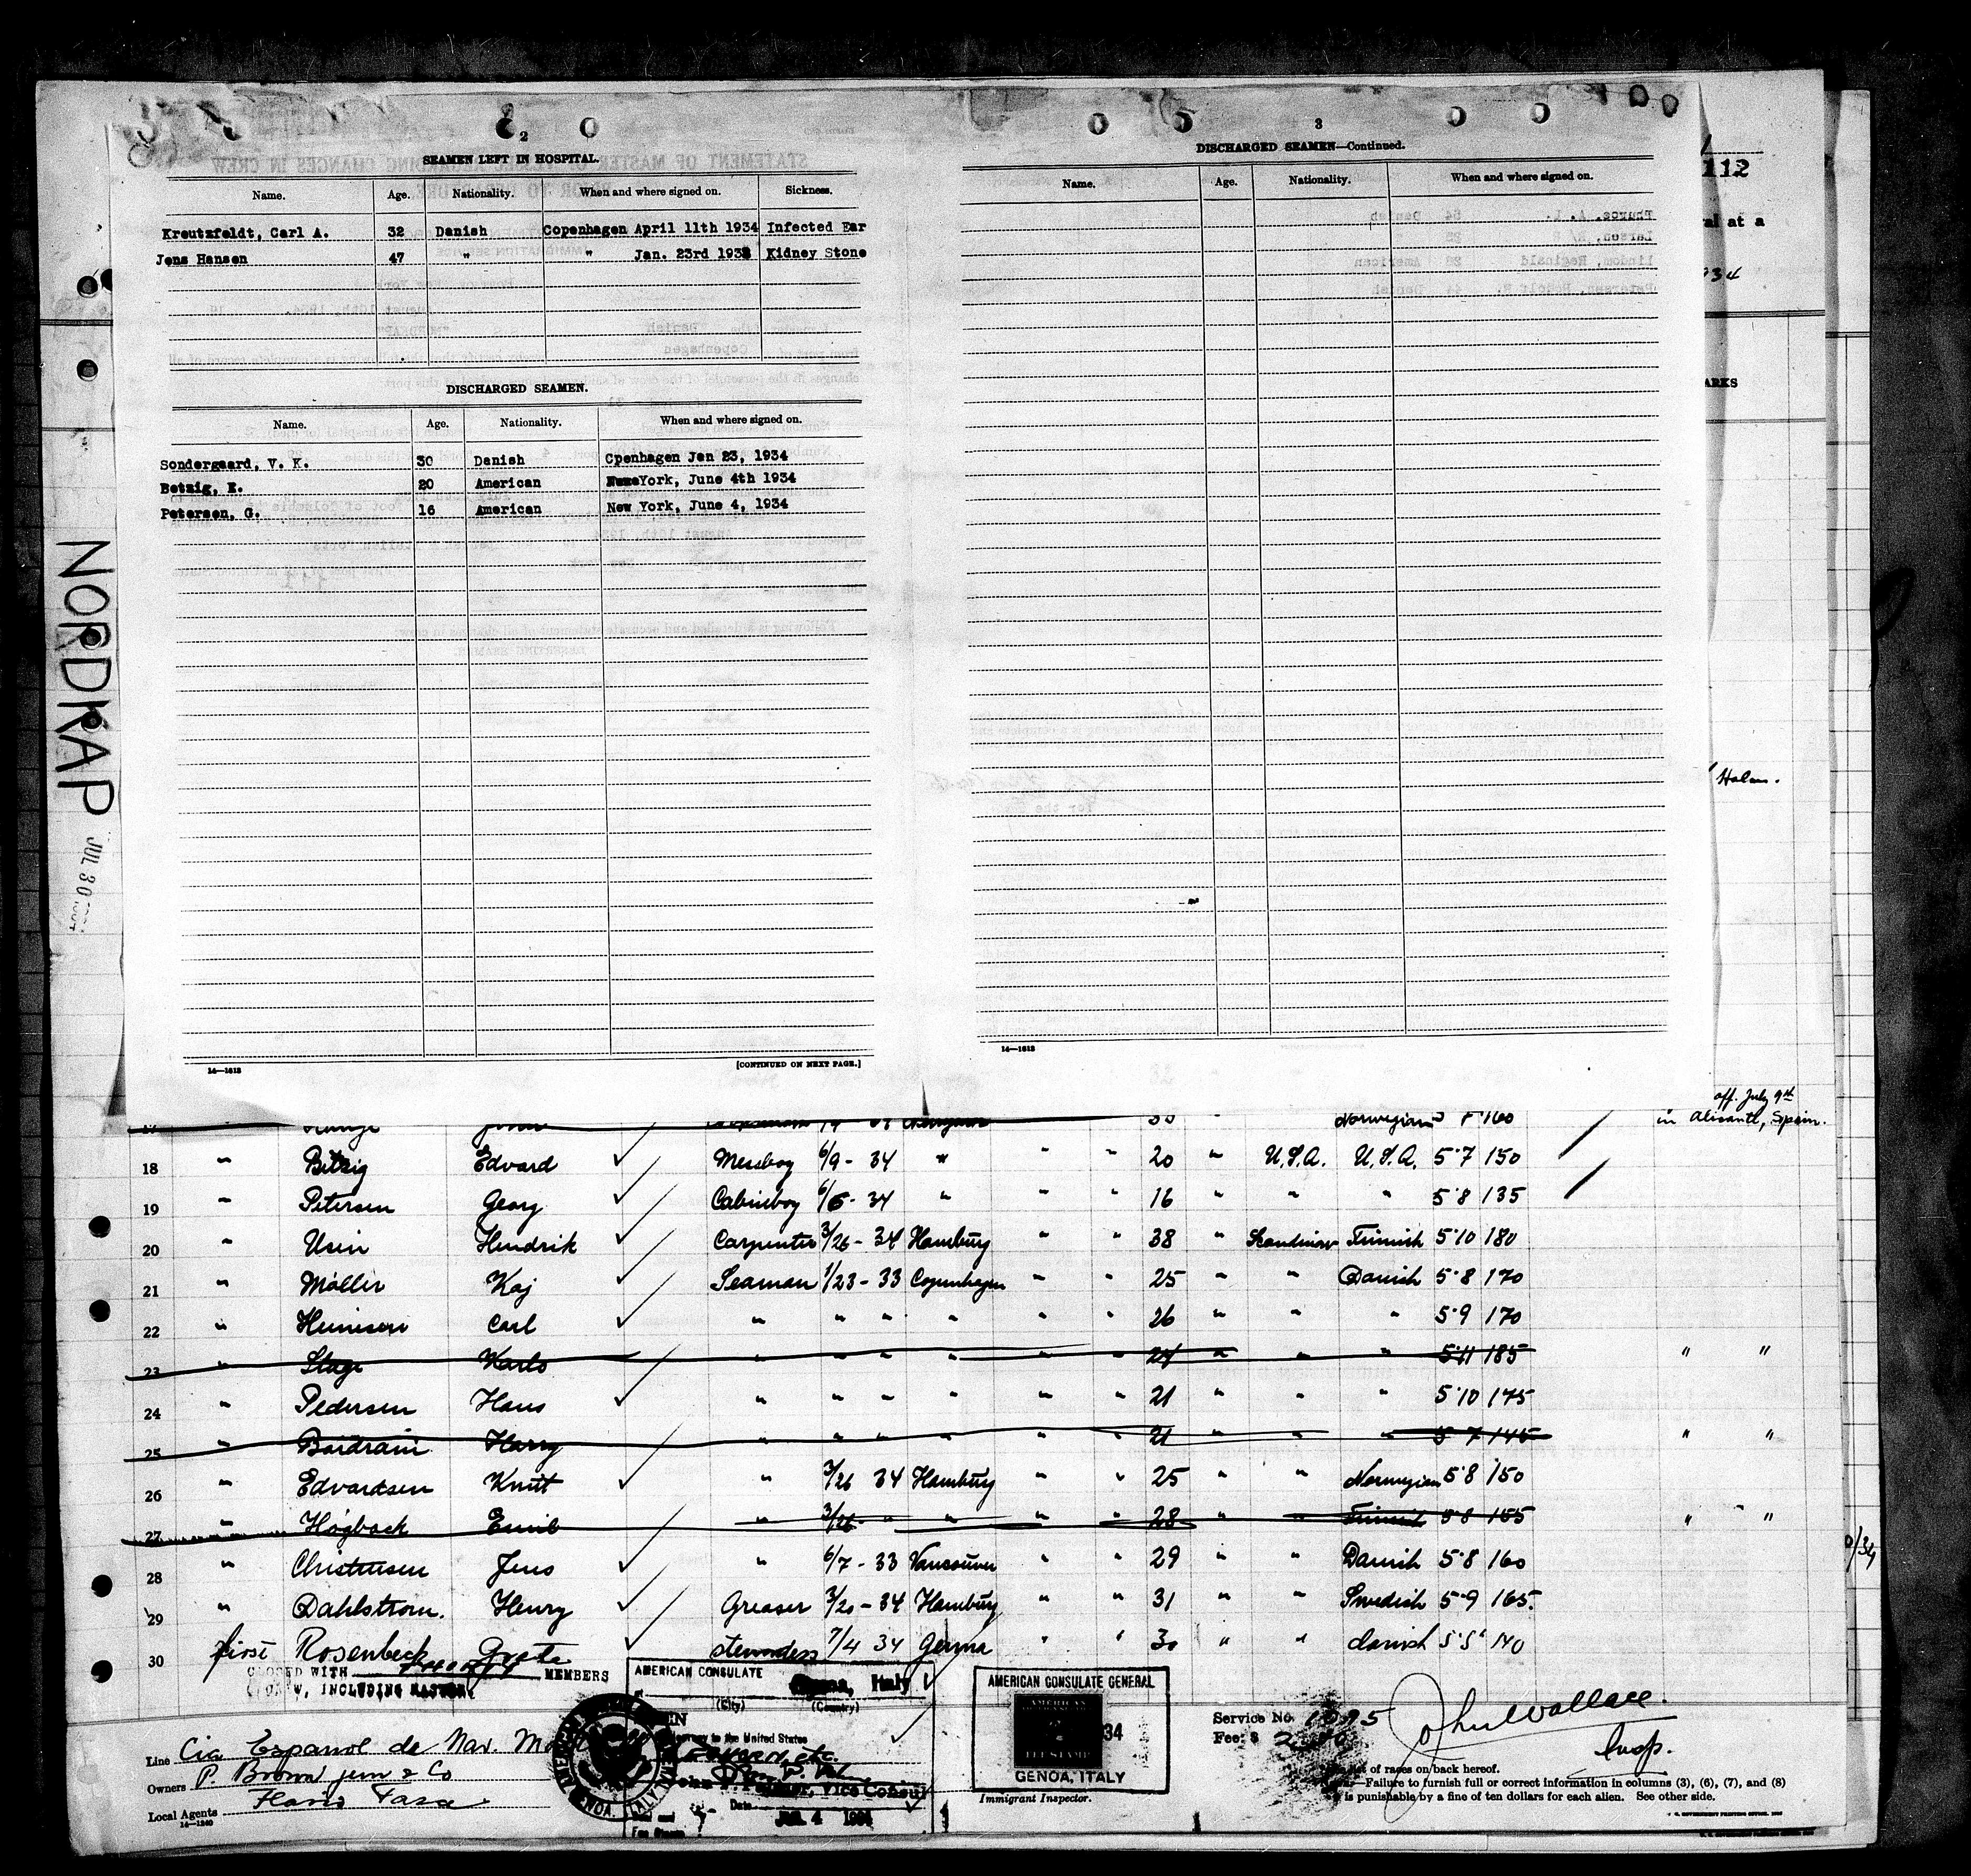 2
SEAMEN LEFT IN HOSPITAL.
Name. Age. Nationality. When and where signed on. Sickness.
Kreutzfeldt, Carl A. 32 Danish Copenhagen April 11th 1934 Infected Ear
Jens Hansen 47 " " Jan. 23rd 193 Kidney Stone
DISCHARGED SEAMEN.
Name. Age. Nationality. When and where signed on.
Sondergaard, V. K. 30 Danish Cpenhagen Jan 23, 1934
Betzig, E. 20 American York, June 4th 1934
Petersen, G. 16 American New York, June 4, 1934
14—1613
[CONTINUED ON NEXT PAGE.]
3
DISCHARGED SEAMEN—Continued.
Name. Age. Nationality. When and where signed on.
14—1613
112
al at a
34
ARKS
Holm.
NORDKAP
JUL 30
off. July 9th
17 Norwegian 160 in Alicante, Spain.
18 " Bitzig Edvard Messboy 6/9 - 34 " " " 20 " U.S.A. U.S.A. 5·7 150
19 " Petersen Georg Cabinboy 6/5 - 34 " " " 16 " " " 5·8 135
20 " Usin Hendrik Carpenter 3/26 - 34 Hamburg " " 38 " Scandinav Finnish 5·10 180
21 " Möller Kaj Seaman 1/23 - 33 Copenhagen " " 25 " " Danish 5·8 170
22 " Heinisen Carl " " " " " " " 26 " " " 5·9 170
23 " Stage Karlo " " " " " " " 24 " " " 5·11 185 " "
24 " Pedersen Hans " " " " " " " 21 " " " 5·10 175
25 " Bardram Harry " " " " " " " 21 " " " 5 7 145 " "
26 " Edvardsen Knut " 3/26 34 Hamburg " " 25 " " Norwegian 5·8 150
27 " Högback Emil " 3/26 " " " " 28 " " Finnish 5·8 155 " "
28 " Christensen Jens " 6/7 - 33 Vancouver " " 29 " " Danish 5·8 160
29 " Dahlstrom. Henry Greaser 3/20 - 34 Hamburg " " 31 " " Swedish 5·9 165.
30 first Rosenbeck Grete 7/4 34 Genua " " 30 " " danish 5·5 140
CLOSED WITH MEMBERS
CREW, INCLUDING MASTER
AMERICAN CONSULATE
Italy
(City) (Country)
to the United States
Vice Consul
Date
JUL 4 1934
GENOA, ITALY
AMERICAN CONSULATE GENERAL
AMERICAN
2
FEE STAMP
34
GENOA, ITALY
Service No. 1095
Fee: $ 2
John Wallace.
Insp.
Immigrant Inspector.
Line Cia Espanol de Nav. M
Owners P. Brown jun & Co
Local Agents
14—1240
of races on back hereof.
—Failure to furnish full or correct information in columns (3), (6), (7), and (8)
is punishable by a fine of ten dollars for each alien. See other side.